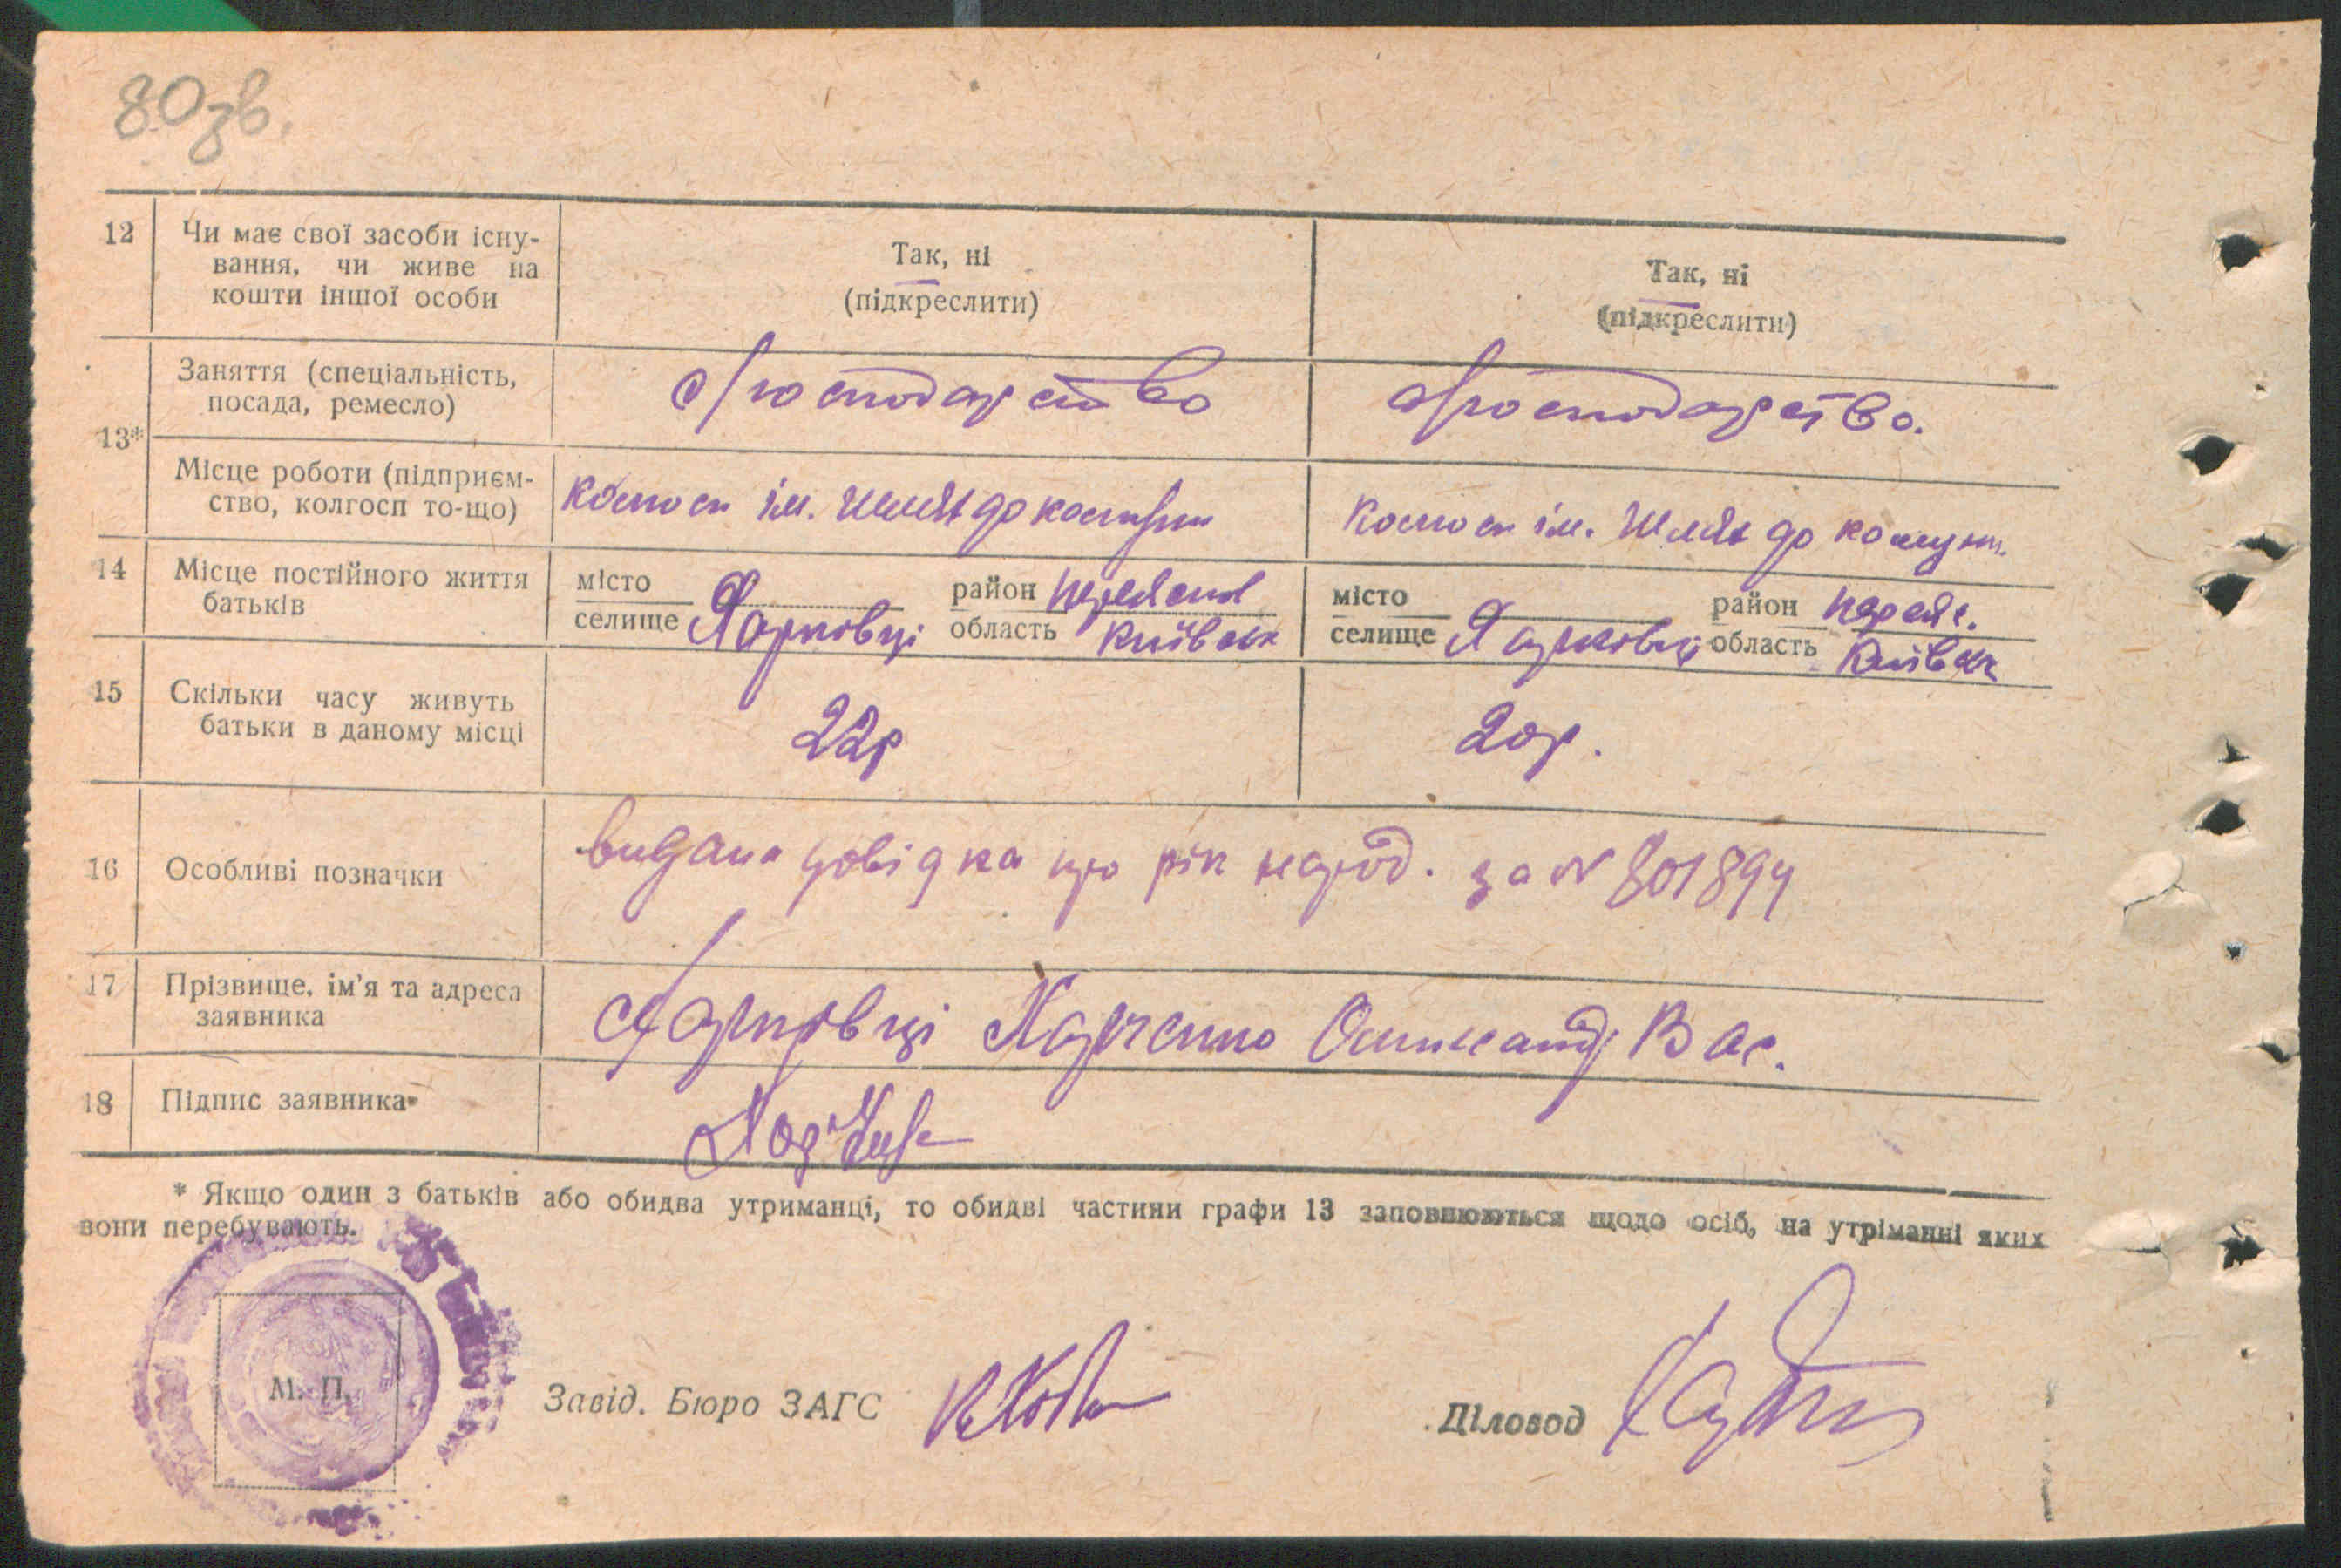 80зв.
12 Чи має свої засоби існу-
вання, чи живе на
кошти іншої особи
Так, ні
(підкреслити)
Так, ні
(підкреслити)
13*
Заняття (спеціальність,
посада, ремесло)
господарство
господарство.
Місце роботи (підприєм-
ство, колгосп то-що)
ім. Шлях до
ім. Шлях до комун.
14 Місце постійного життя
батьків
місто
селище
район
область Київськ
місто
селище
район Переяс.
область Київськ
15 Скільки часу живуть
батьки в даному місці
22р
20р.
16 Особливі позначки
видана довідка про рік народ. за № 801894
17 Прізвище, ім'я та адреса
заявника
Харченко Олександ Вас.
18 Підпис заявника
* Якщо один з батьків або обидва утриманці, то обидві частини графи 13 заповнюються щодо осіб, на утріманні яких
вони перебувають.
М. П.
Завід. Бюро ЗАГС
Діловод